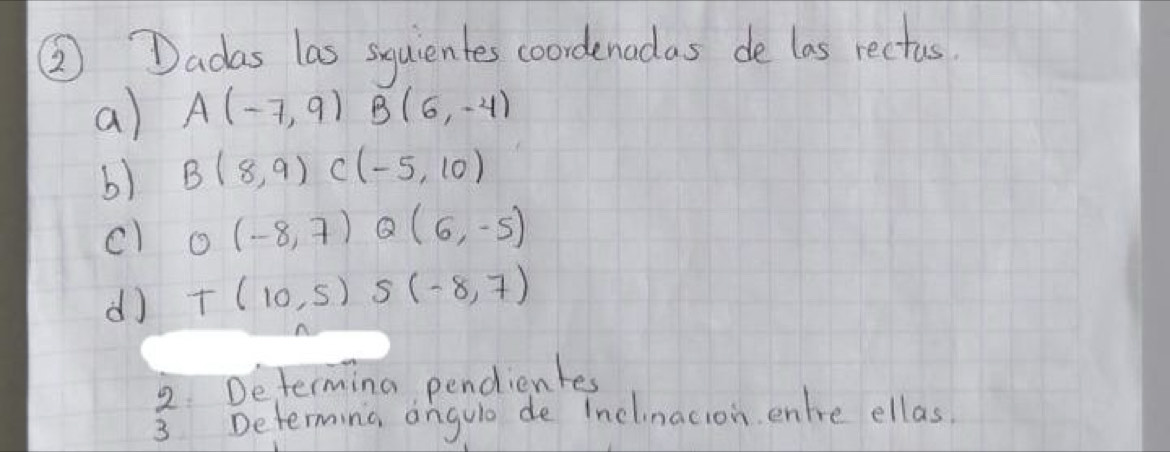 ② Dadas las siguientes coordenadas de las rectas.
a) A(-7,9) B(6,-4)
b) B(8,9) C(-5,10)
c) O (-8,7) Q(6,-5)
d) T (10,5) S(-8,7)
2. Determina pendientes
3 Determina ángulo de Inclinación entre ellas.